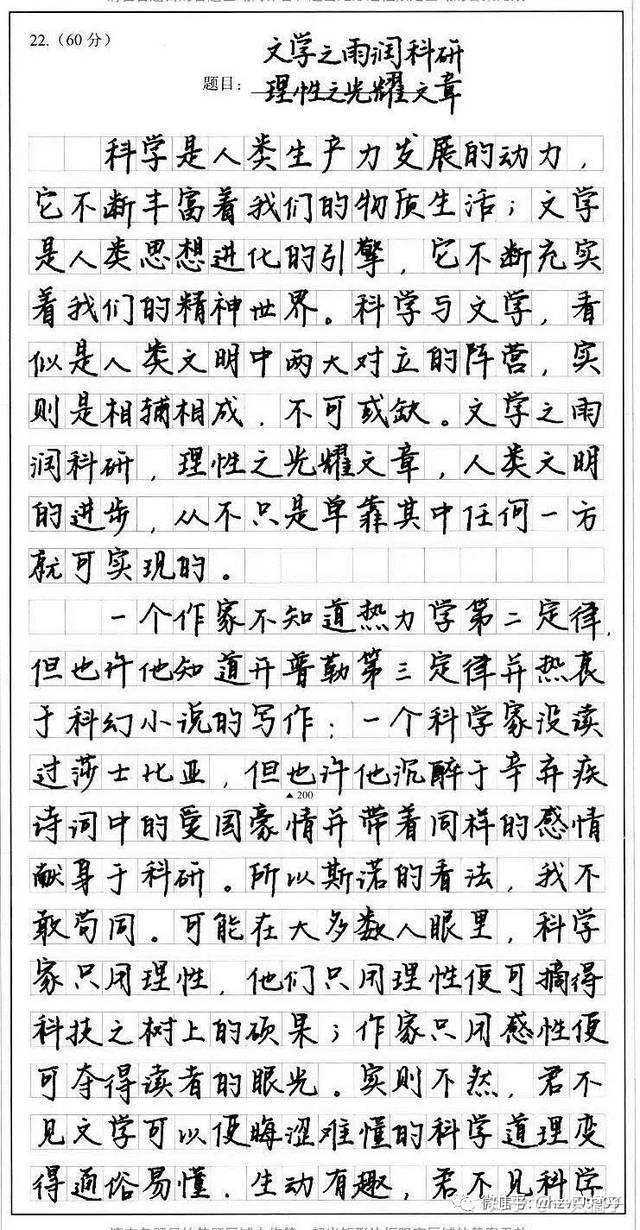 22.（60分）
文学之雨润科研
题目：理性之光耀文章
科学是人类生产力发展的动力，
它不断丰富着我们的物质生活；文学
是人类思想进化的引擎，它不断充实
着我们的精神世界。科学与文学，看
似是人类文明中两大对立的阵营，实
则是相辅相成，不可或缺。文学之雨
润科研，理性之光耀文章，人类文明
的进步，从不只是单靠其中任何一方
就可实现的。
一个作家不知道热力学第二定律，
但也许他知道开普勒第三定律并热衷
于科幻小说的写作；一个科学家没读
过莎士比亚，但也许他沉醉于辛弃疾
▲200
诗词中的爱国豪情并带着同样的感情
献身于科研。所以斯诺的看法，我不
敢苟同。可能在大多数人眼里，科学
家只用理性，他们只用理性便可摘得
科技之树上的硕果；作家只用感性便
可夺得读者的眼光。实则不然，君不
见文学可以使晦涩难懂的科学道理变
得通俗易懂，生动有趣，君不见科学
微信号：